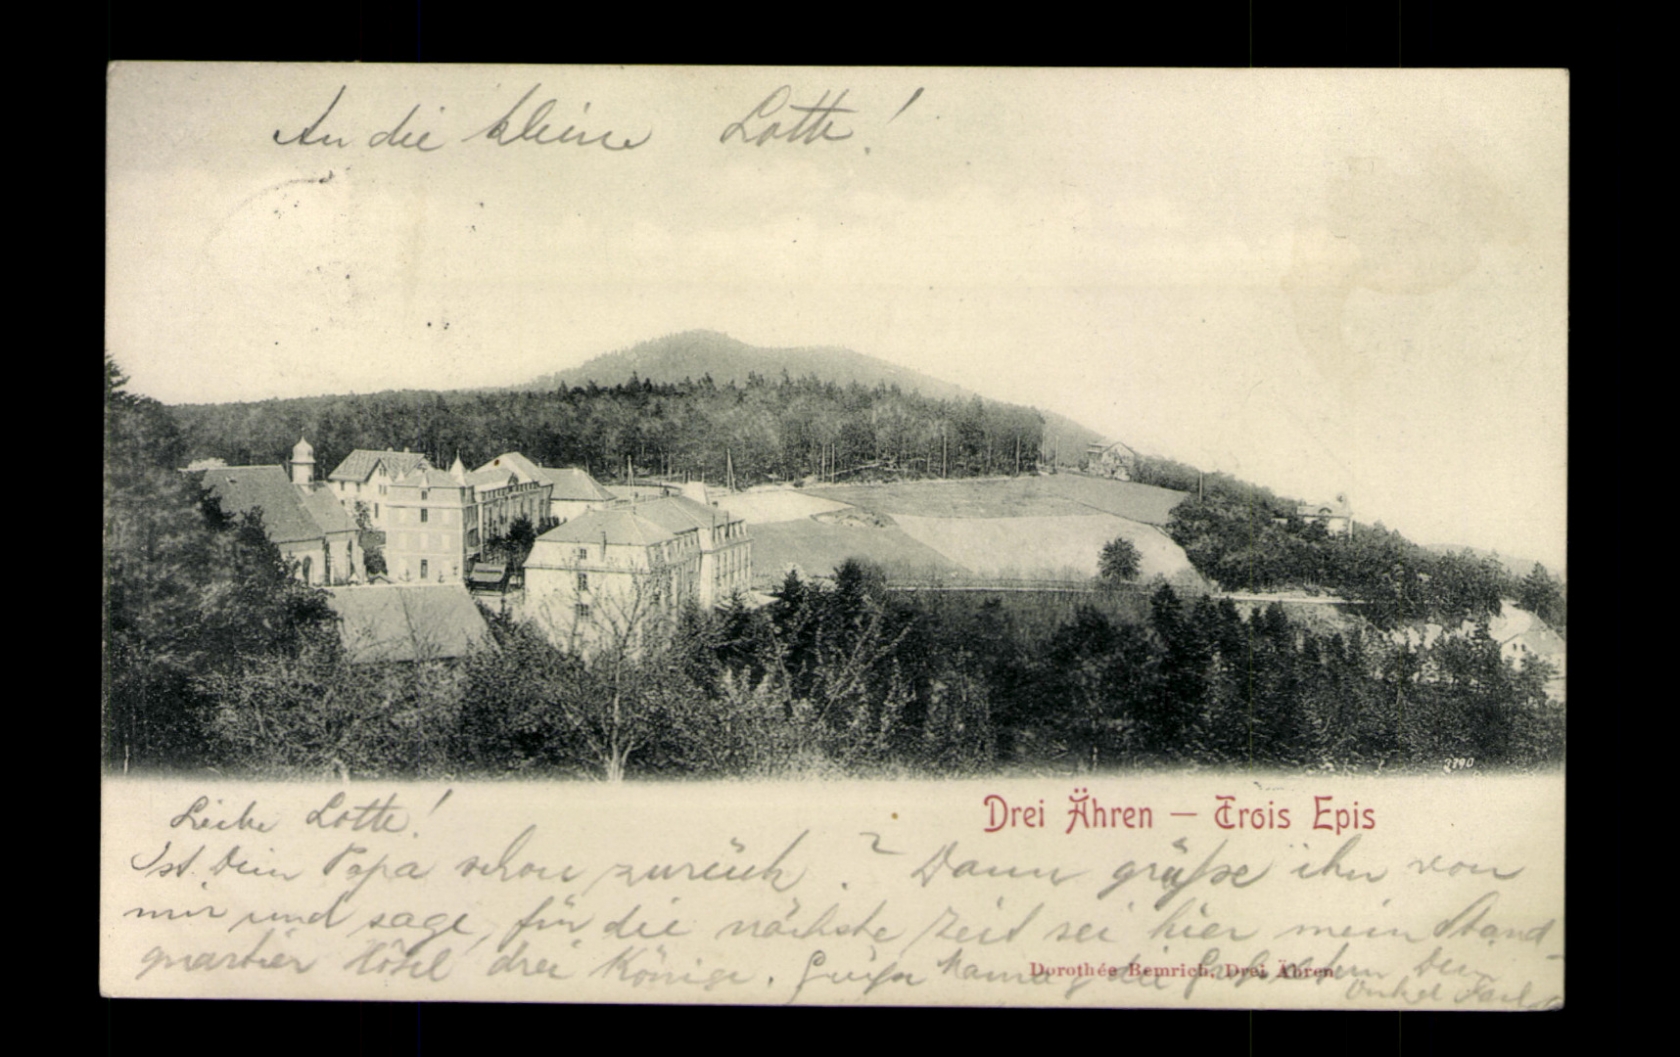 An die kleine Lotte!
2190
Drei Ähren — Trois Epis
Liebe Lotte!
Ist Dein Papa schon zurück? Dann grüße ihn von
mir und sage, für die nächste Zeit sei hier mein Stand
quartier Hôtel drei Könige. Grüße Mama die Großeltern Dein
Dorothée Bemrich, Drei Ähren
Onkel